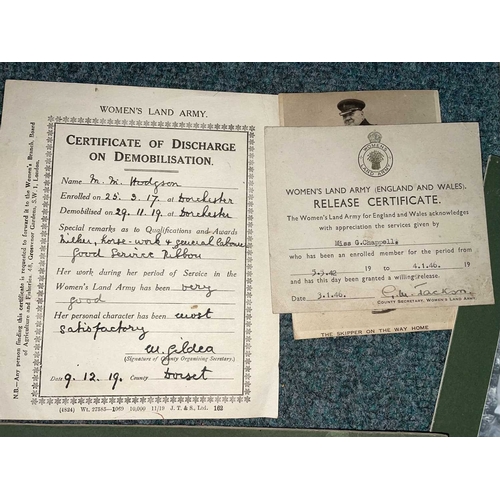 WOMEN'S LAND ARMY.
CERTIFICATE OF DISCHARGE
ON DEMOBILISATION.
Name M. M. Hodgson
Enrolled on 25. 3. 17. at Dorchester
Demobilised on 29. 11. 19. at Dorchester
Special remarks as to Qualifications and Awards
Milker, horse-work & general labour
Good Service Ribbon
Her work during her period of Service in the
Women's Land Army has been very
good
Her personal character has been most
satisfactory
M. Gildea
(Signature of County Organising Secretary.)
Date 9. 12. 19. County Dorset
(4824) Wt. 27585—1069 10,000 11/19 J. T. & S., Ltd. 162
N.B.—Any person finding this certificate is requested to forward it to the Women's Branch, Board
of Agriculture and Fisheries, 48, Grosvenor Gardens, S.W. 1, London.
WOMENS
LAND ARMY
WOMEN'S LAND ARMY (ENGLAND AND WALES).
RELEASE CERTIFICATE.
The Women's Land Army for England and Wales acknowledges
with appreciation the services given by
Miss G. Chappell
who has been enrolled member for the period from
19 to 4.1.46. 19
and has this day been granted a willing release.
Date 3.1.46.
COUNTY SECRETARY, WOMEN'S LAND ARMY.
THE SKIPPER ON THE WAY HOME